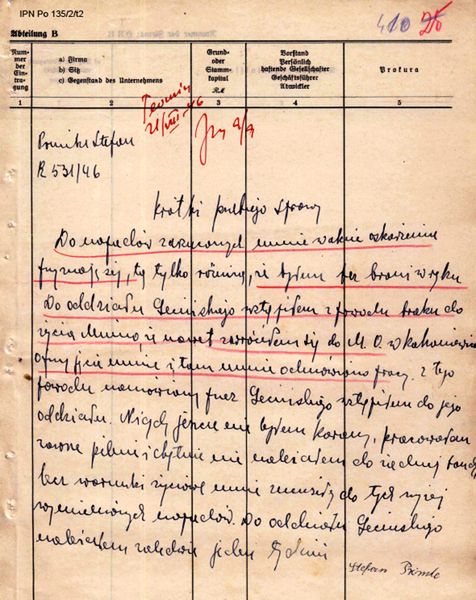 IPN Po 135/2/t2
410 26
Abteilung B
Nummer der Eintragung
a) Firma
b) Sitz
c) Gegenstand des Unternehmens
Grund- oder Stammkapital
RM
Vorstand
Persönlich
haftende Gesellschafter
Geschäftsführer
Abwickler
Prokura
1 2 3 4 5
Termin
21/VIII 46
Stefan
R 531/46
Krótki przebieg sprawy
Do napadów zarzucanych mnie w akcie oskarżenia
przyznaję się, tą tylko różnicą, iż byłem bez broni w ręku
Do oddziału wstąpiłem z powodu braku do
życia. Mimo iż nawet zwróciłem się do M.O. w
przyjęcie mnie i tam mnie odmówiono pracy. Z tego
powodu namówiony przez wstąpiłem do jego
oddziału. Nigdy jeszcze nie byłem karany, pracowałem
zawsze pilnie i chętnie nie należałem do żadnej bandy
bez warunki życiowe mnie zmusiły do tych wyżej
wymienionych napadów. Do oddziału
należałem zaledwie jeden tydzień
Stefan